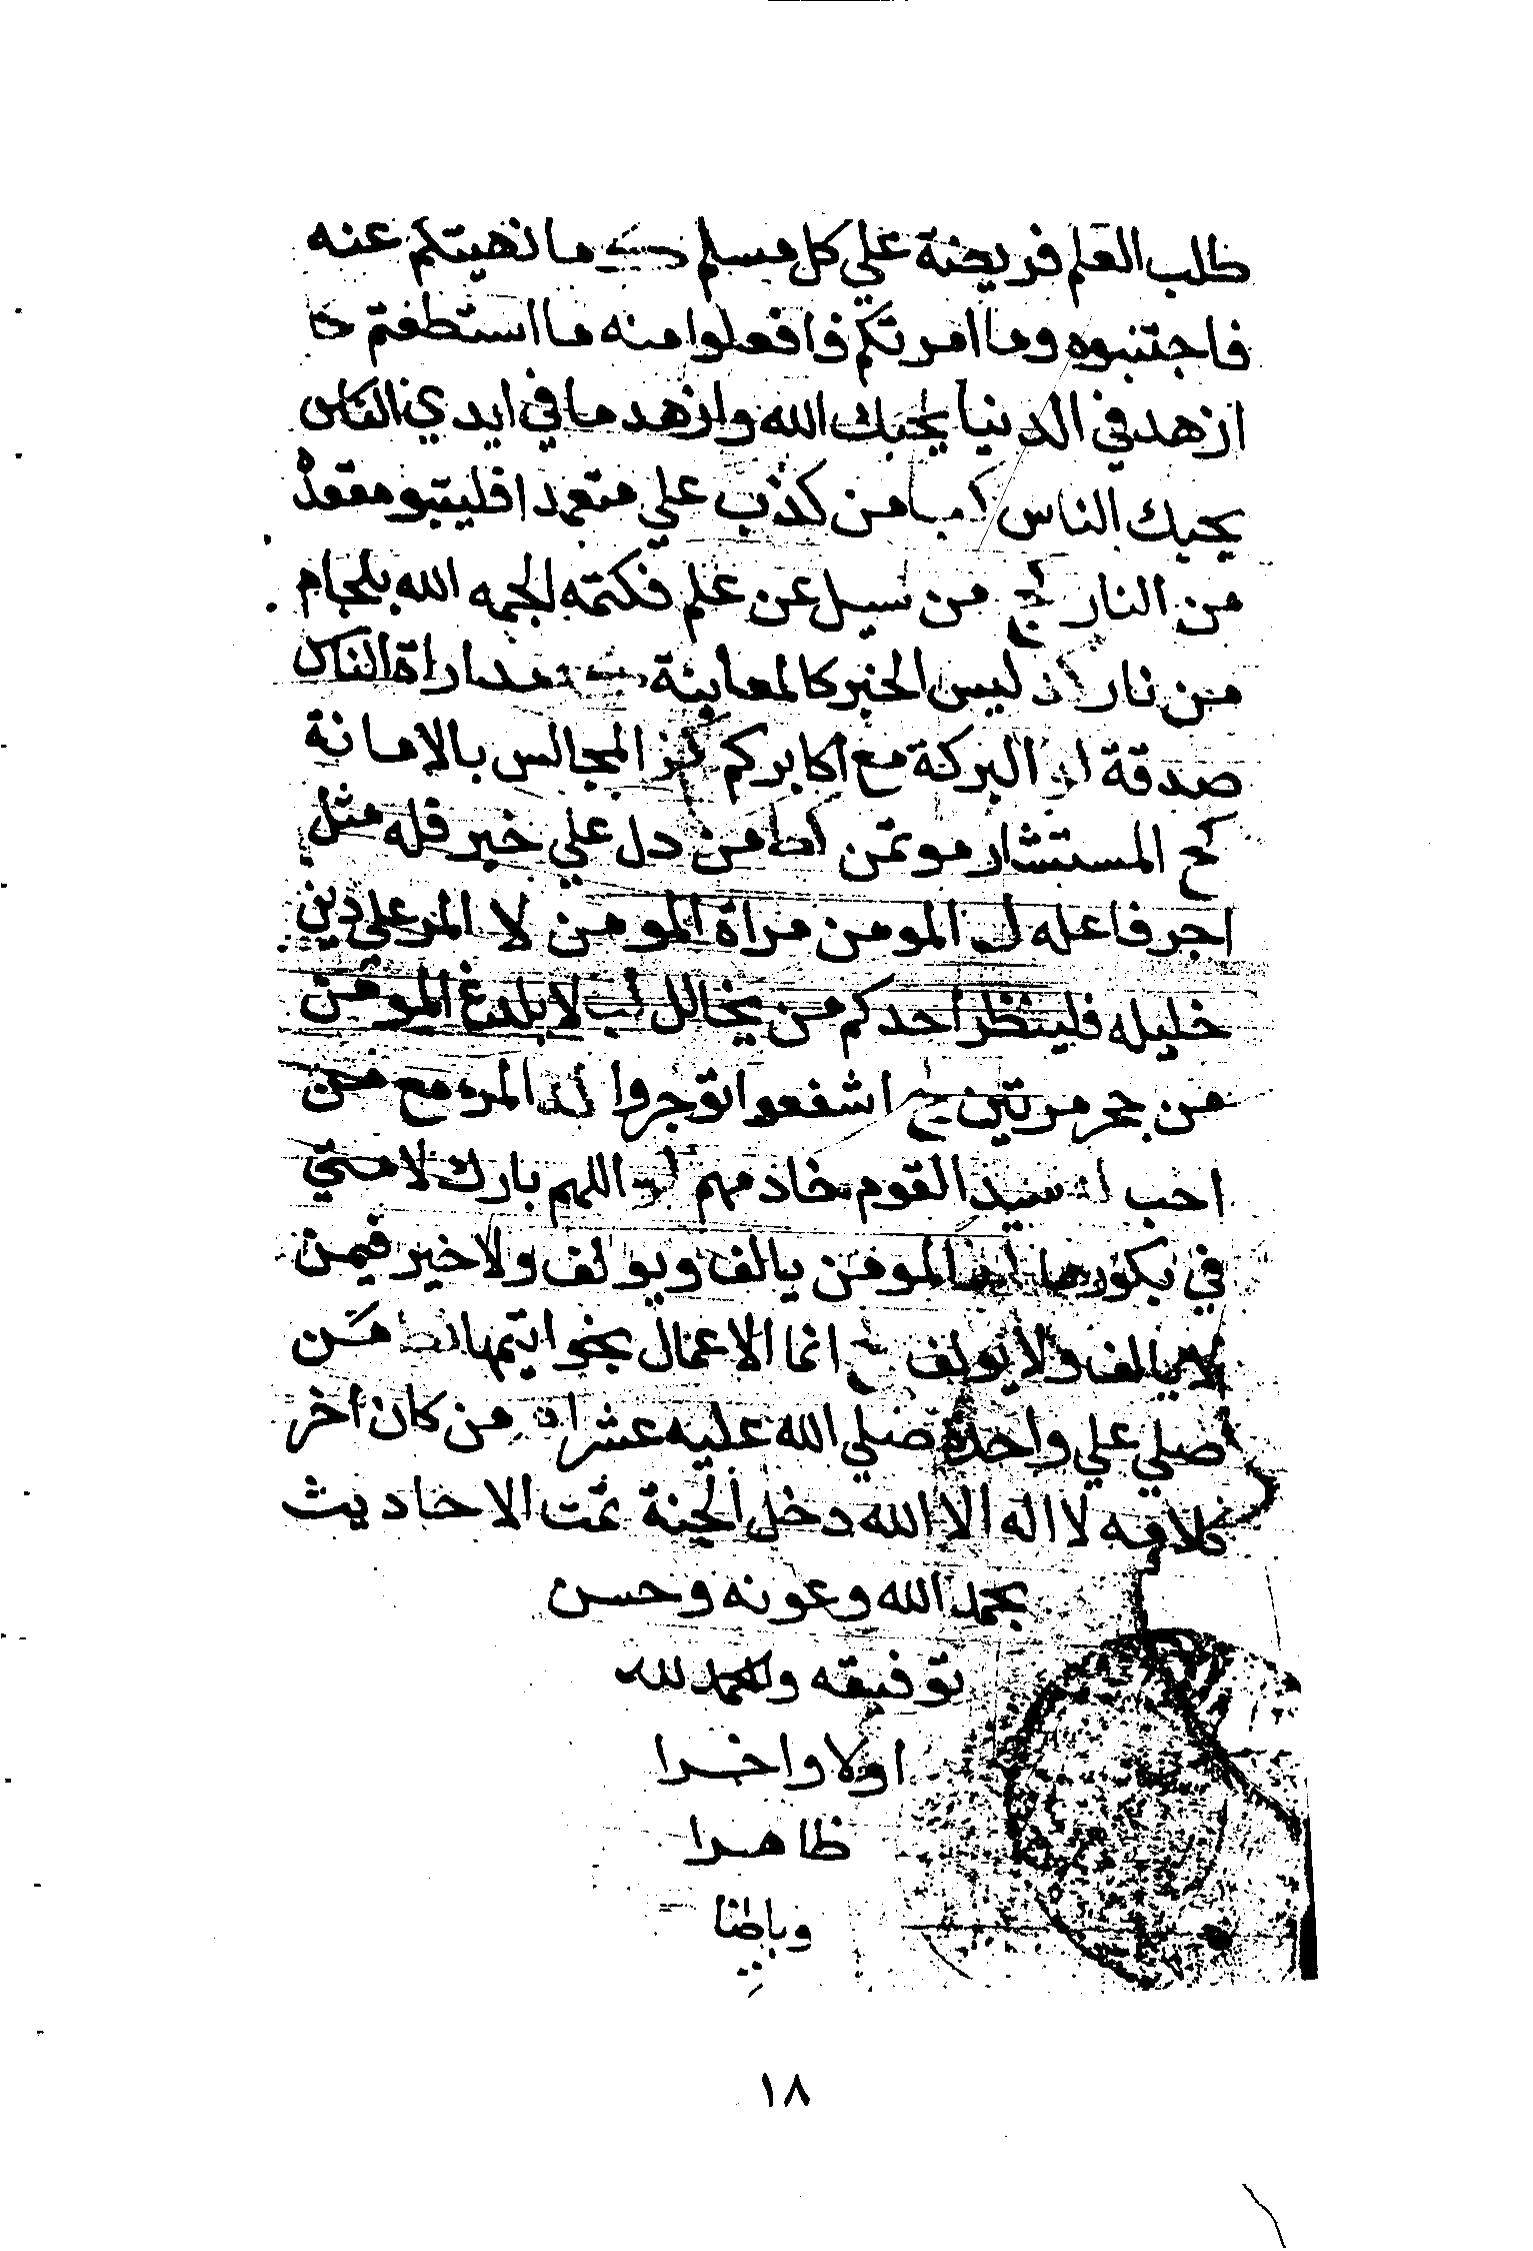 طلب العلم فريضة علي كل مسلم ك ما نهيتكم عنه
فاجتنبوه وما امرتكم فافعلوا منه ما استطعتم كا
ازهد في الدنيا يحبك الله وازهد ما في ايدي الناس
يحبك الناس كب من كذب علي متعمدا فليتبو مقعده
من النار كج من سيل عن علم فكتمه الجمه الله بلجام
من نار كد ليس الخبر كالمعاينة كه مداراة الناس
صدقة كو البركة مع اكابركم كز المجالس بالامانة
كح المستشار موتمن كط من دل علي خير فله مثل
اجر فاعله ل المومن مراة المومن لا المر علي دين
خليله فلينظر احدكم من يخالل لب لا يلدغ المومن
من جحر مرتين لج اشفعوا توجروا لد المرء مع من
احب له سيد القوم خادمهم لو اللهم بارك لامتي
في بكورها لز المومن يالف ويولف ولا خير فيمن
لا يالف ولا يولف لح انما الاعمال بخواتيمها لط من
صلي علي واحدة صلي الله عليه عشرا م من كان اخر
كلامه لا اله الا الله دخل الجنة تمت الاحاديث
بحمد الله وعونه وحسن
توفيقه والحمد لله
اولا واخرا
ظاهرا
وباطنا
١٨